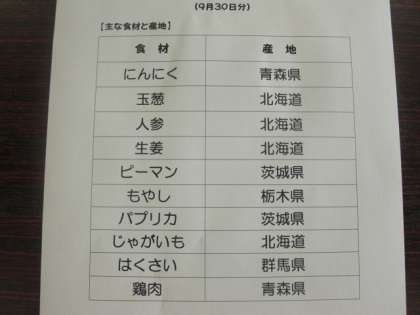 (9月30日分)
【主な食材と産地】
食 材 産 地
にんにく 青森県
玉葱 北海道
人参 北海道
生姜 北海道
ピーマン 茨城県
もやし 栃木県
パプリカ 茨城県
じゃがいも 北海道
はくさい 群馬県
鶏肉 青森県